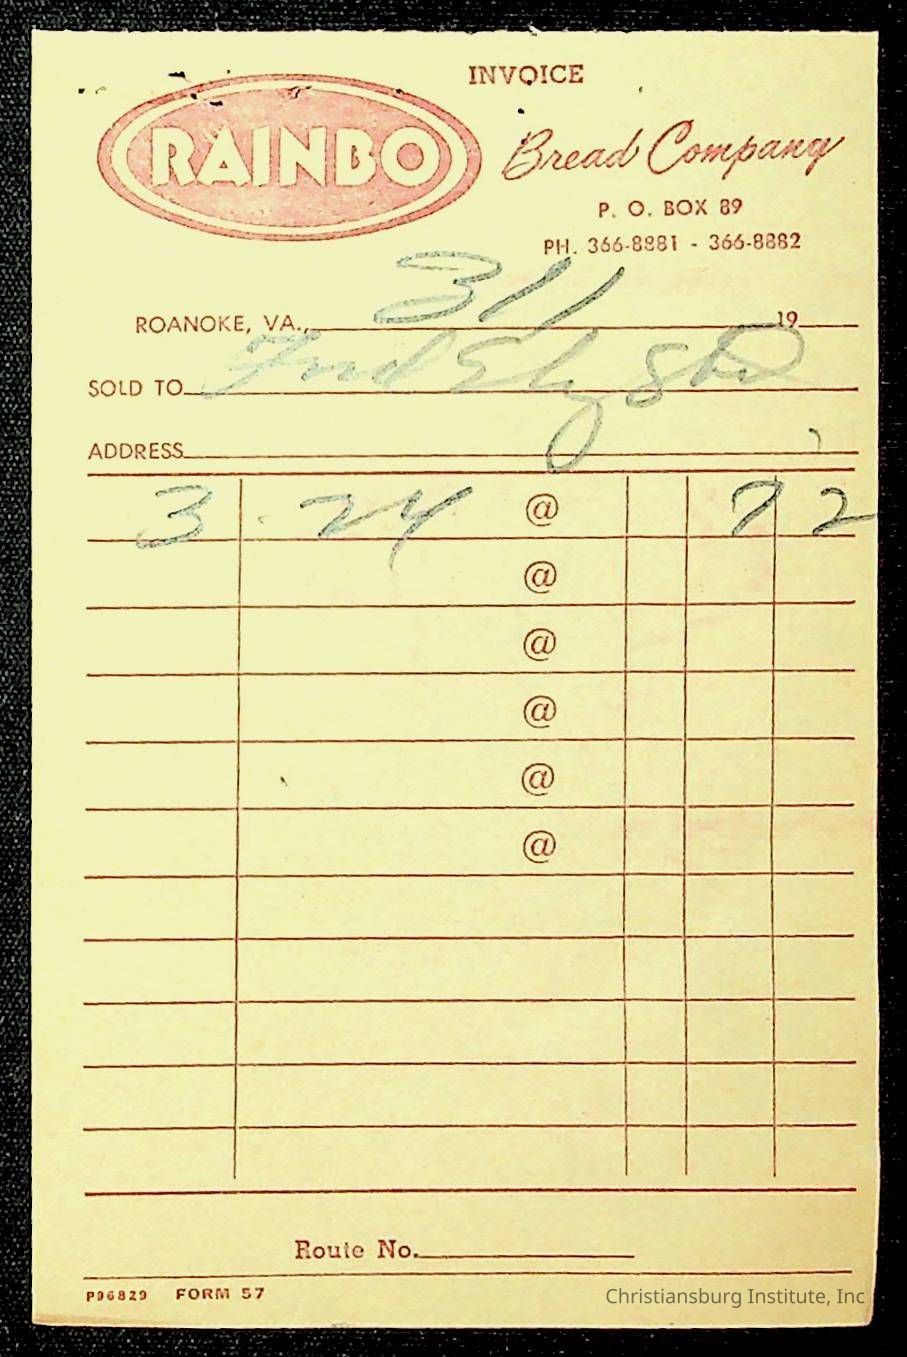 INVOICE
RAINBO
Bread Company
P. O. BOX 89
PH. 366-8881 - 366-8882
ROANOKE, VA., 311 19
SOLD TO
ADDRESS
3 24 @ 72
@
@
@
@
@
Route No.
P96829 FORM 57
Christiansburg Institute, Inc